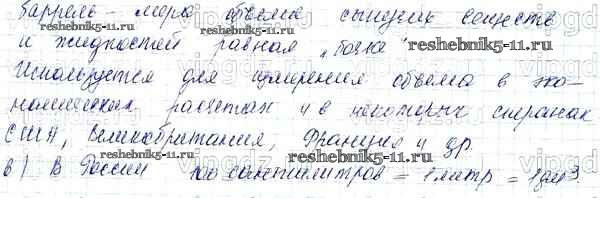 баррель – мера объема сыпучих веществ
и жидкостей равная „бочка"
Используется для измерения объема в эко-
номических расчетах и в некоторых странах
США, Великобритания, Франция и др.
в) В России 100 сантилитров = 1 литр = 1 дм³.
reshebnik5-11.ru
reshebnik5-11.ru
reshebnik5-11.ru
reshebnik5-11.ru
vipgdz